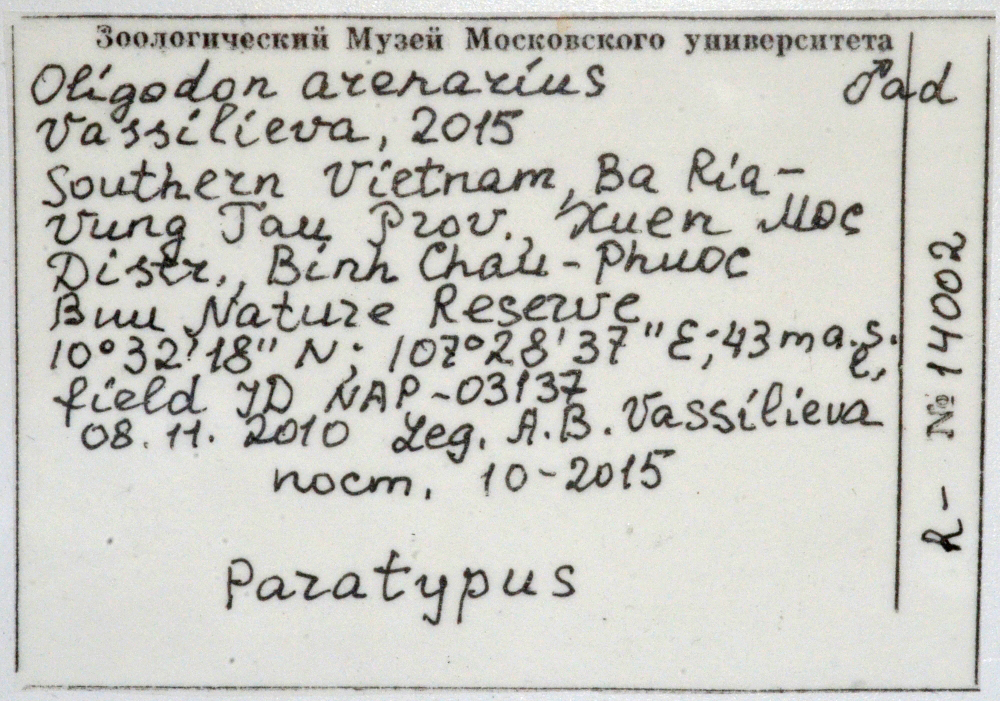 Зоологический Музей Московского университета
Oligodon arenarius ♂ad
Vassilieva, 2015
Southern Vietnam, Ba Ria-
Vung Tau Prov., Xuen Moc
Distr., Binh Chau-Phuoc
Buu Nature Reserve
10°32'18" N; 107°28'37" E; 43 m a.s.
l.,
field ID NAP-03137
08.11.2010 Leg. A.B. Vassilieva
пост. 10-2015
Paratypus
R- № 14002